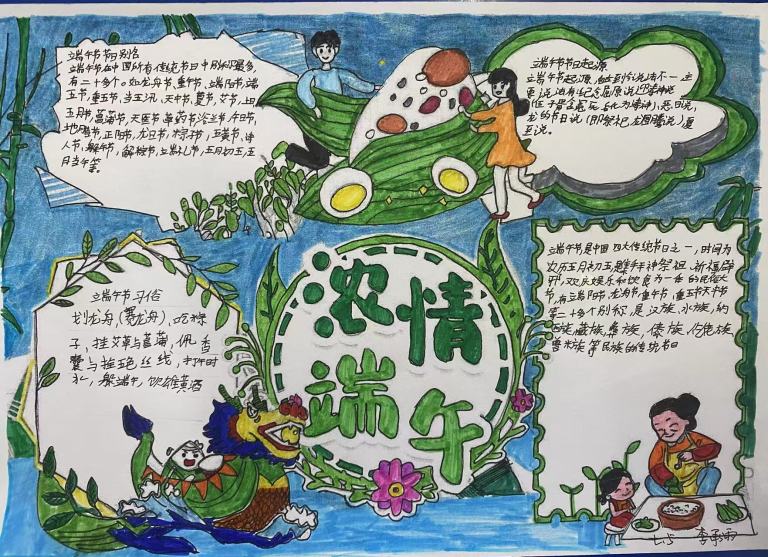 端午节节日别名
端午节在中国所有传统节日中别称最多
有二十多个。如龙舟节、重午节、端阳节、端
五节、重五节、当五汛、天中节、夏节、艾节、上
五月节、菖蒲节、天医节、草药节、浴兰节、午日节、
地腊节、正阳节、龙日节、粽子节、五黄节、诗
人节、躲午节、解粽节、端礼节、五月初五、五
月当午等。
端午节节日起源
端午节起源,
龙的节日说(即祭祀龙图腾说)夏
至说。
浓情
端午
端午节习俗
划龙舟,(赛龙舟)、吃粽
子、挂艾草与菖蒲、佩香
囊与拴五色丝线,打午时
水,躲端午,饮雄黄酒
端午节是中国四大传统节日之一,时间为
农历五月初五,是集拜神祭祖、祈福辟
邪、欢庆娱乐和饮食为一体的民俗大
节,有端阳节、龙舟节、重午节、重五节、天中节
等二十多个别称,是汉族、水族、纳
西族、藏族、彝族、傣族、仡佬族、
普米族等民族的传统节日